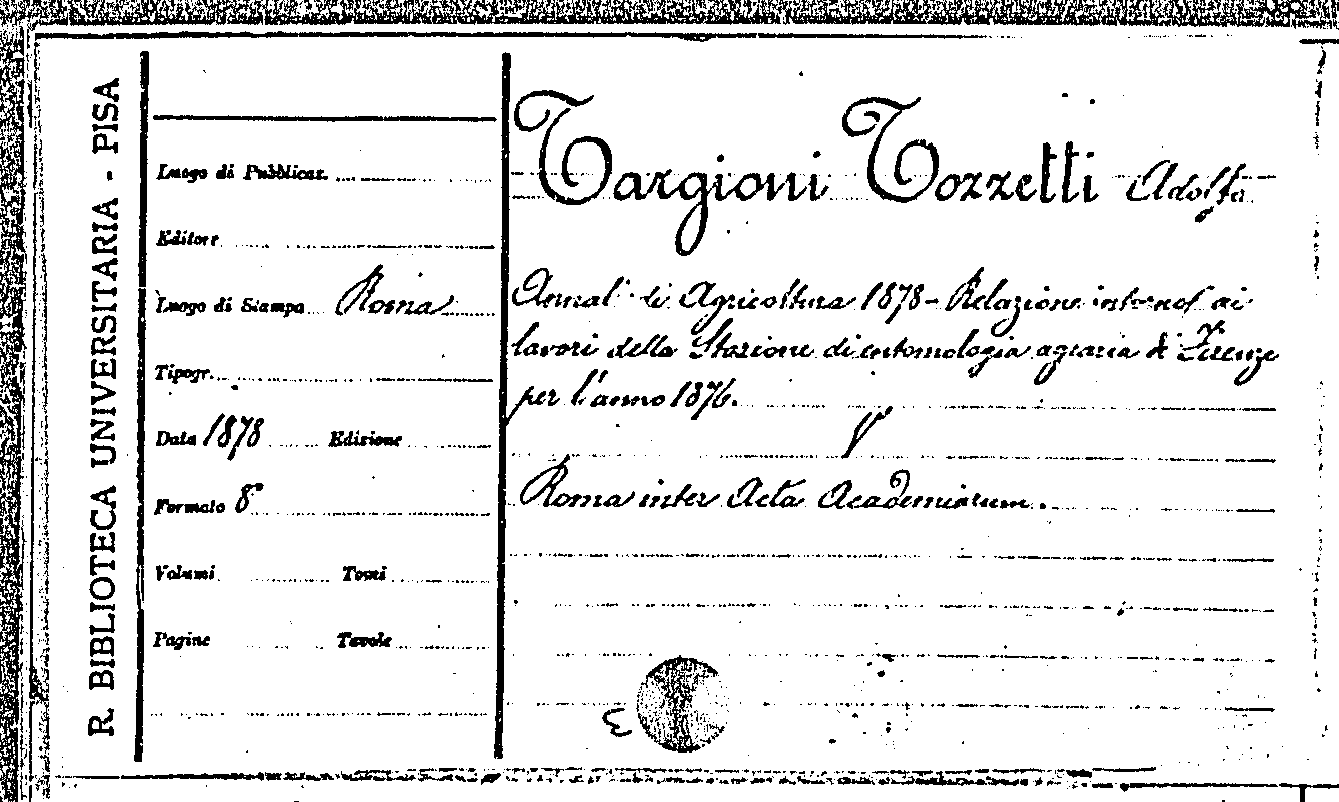 R. BIBLIOTECA UNIVERSITARIA - PISA
Luogo di Pubblicaz.
Editore
Luogo di Stampa Roma
Tipogr.
Data 1878 Edizione
Formato 8°
Volumi Tomi
Pagine Tavole
Targioni Tozzetti Adolfo
Annali di Agricoltura 1878 - Relazione intorno ai
lavori della Stazione di entomologia agraria di Firenze
per l'anno 1876.
Roma inter Acta Academiarum.